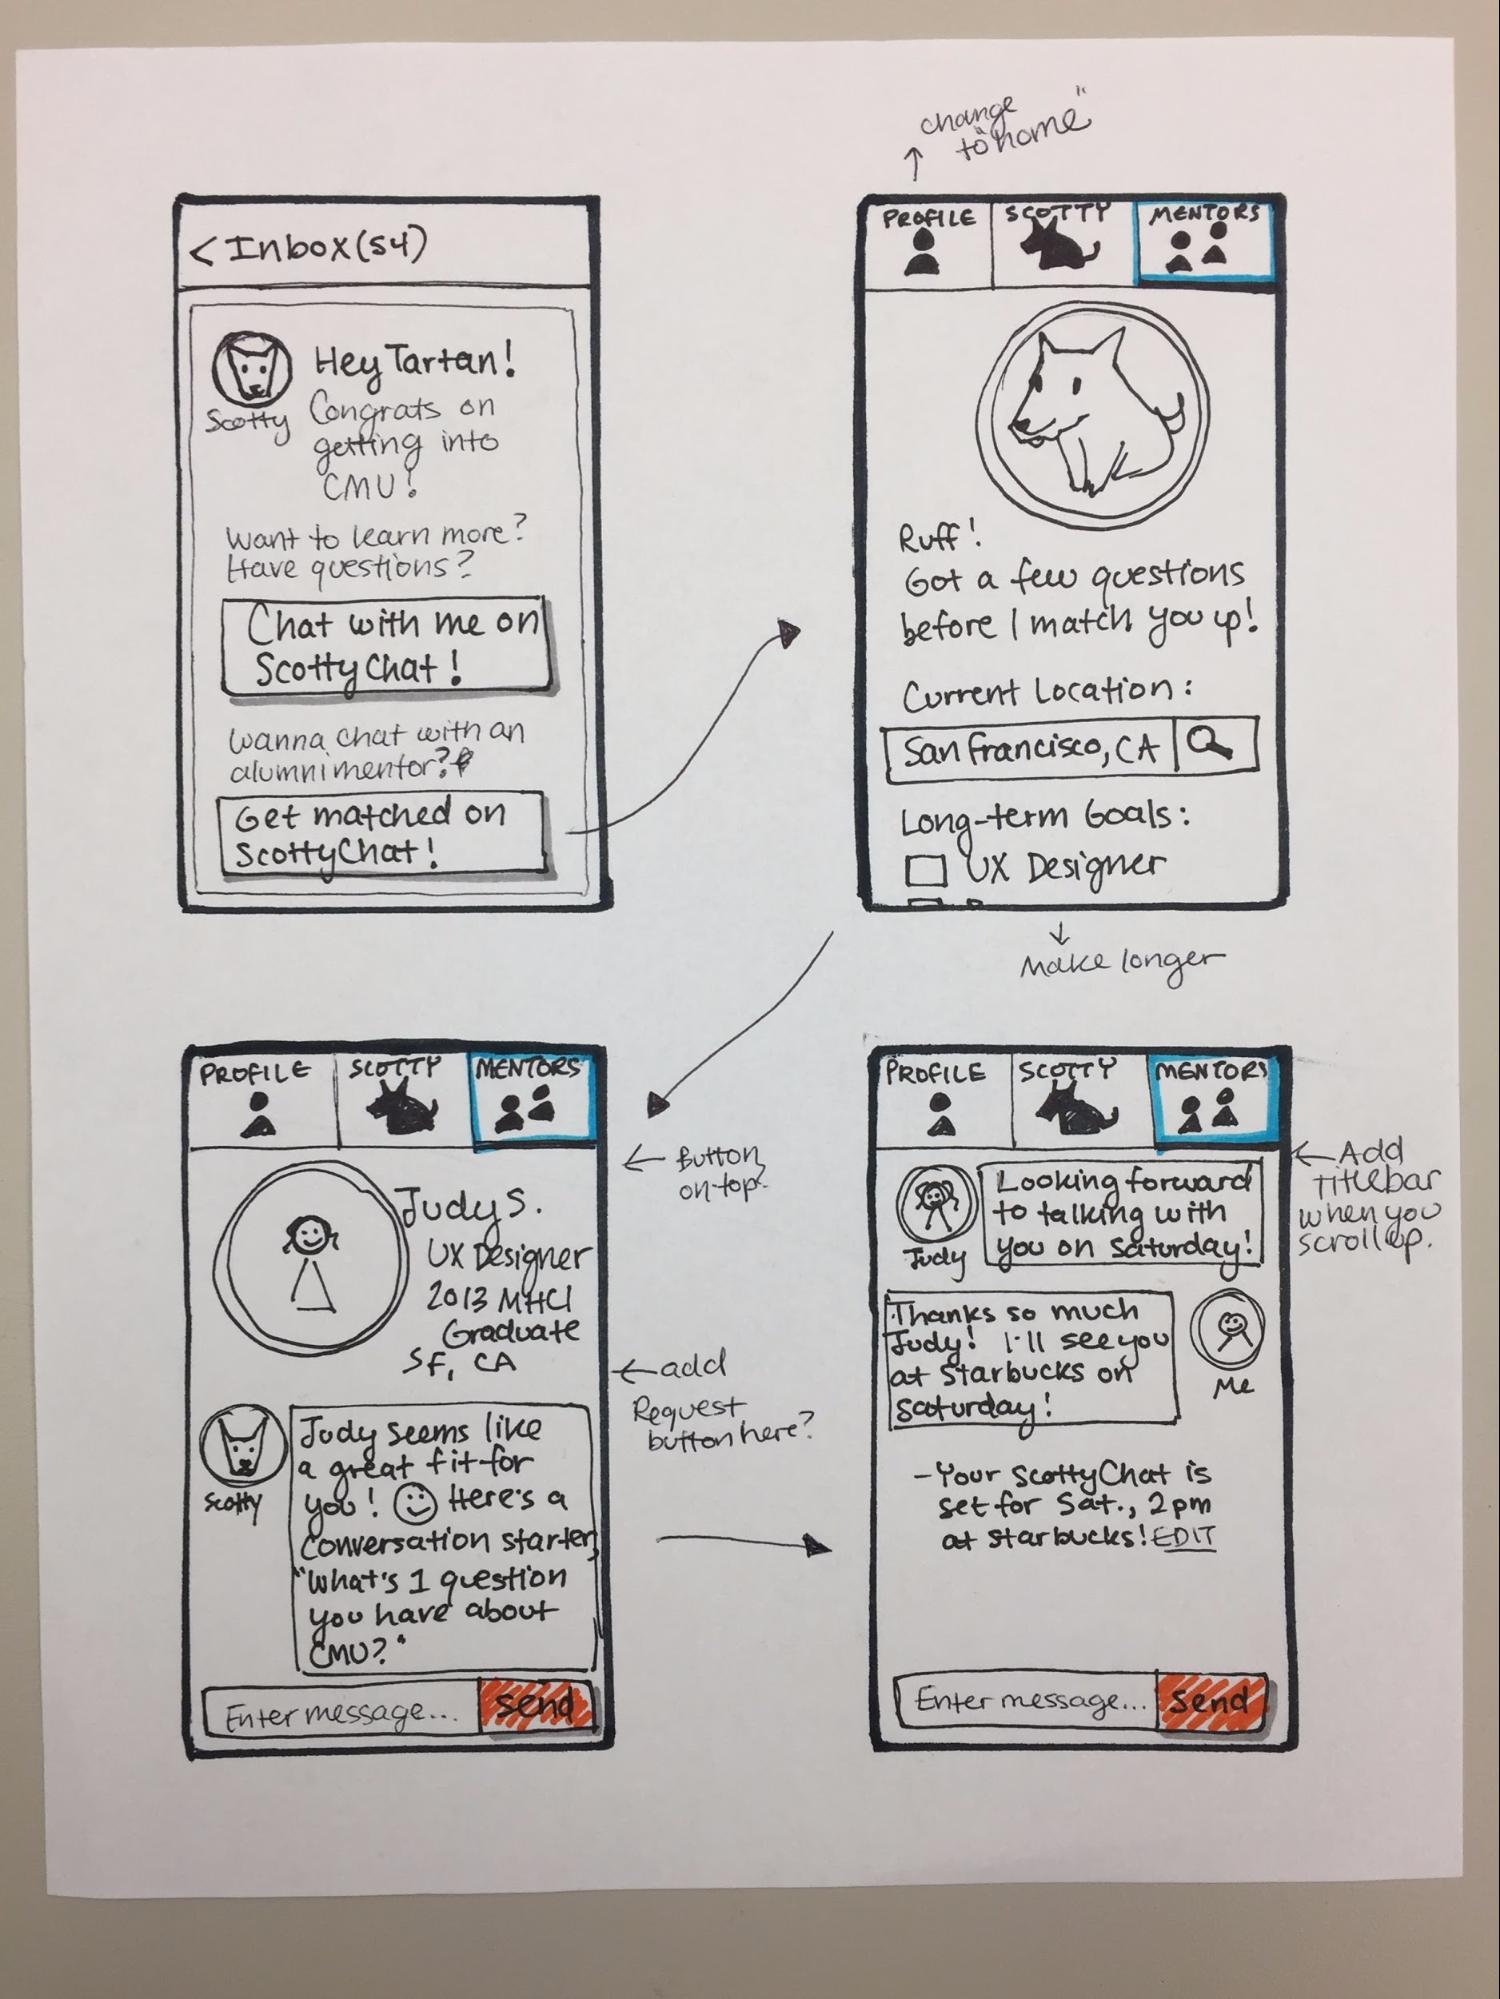 < Inbox (54)
Scotty
Hey Tartan!
Congrats on
getting into
CMU!
Want to learn more?
Have questions?
Chat with me on
ScottyChat!
Wanna chat with an
alumni mentor?
Get matched on
ScottyChat!
change
to "home"
PROFILE SCOTTY MENTORS
Ruff!
Got a few questions
before I match you up!
Current Location:
San Francisco, CA
Long-term Goals:
UX Designer
Make longer
PROFILE SCOTTY MENTORS
Judy S.
UX Designer
2013 MHCI
Graduate
SF, CA
Scotty
Judy seems like
a great fit for
you! Here's a
conversation starter,
"What's 1 question
you have about
CMU?"
Enter message... send
Button
on top?
add
Request
button here?
PROFILE SCOTTY MENTORS
Judy
Looking forward
to talking with
you on Saturday!
Thanks so much
Judy! I'll see you
at Starbucks on
Saturday!
Me
- Your ScottyChat is
set for Sat., 2pm
at Starbucks! EDIT
Enter message... send
Add
Titlebar
when you
scroll up.